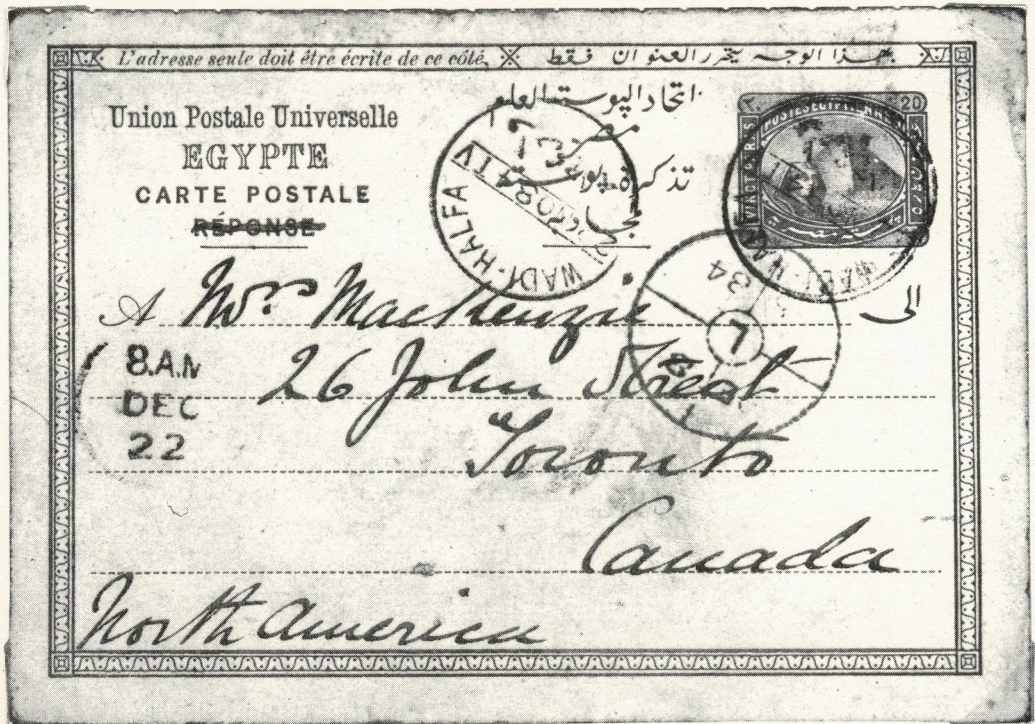 L'adresse seule doit être écrite de ce côté. بهذا الوجه يتحرر العنوان فقط
Union Postale Universelle
EGYPTE
CARTE POSTALE
RÉPONSE
اتحاد البوستة العام
مصر
تذكرة بوستة
20
WADI-HALFA
WADI-HALFA
الى
A Mrs MacKenzie
26 John Street
Toronto
Canada
North America
8.AM
DEC
22
34
7